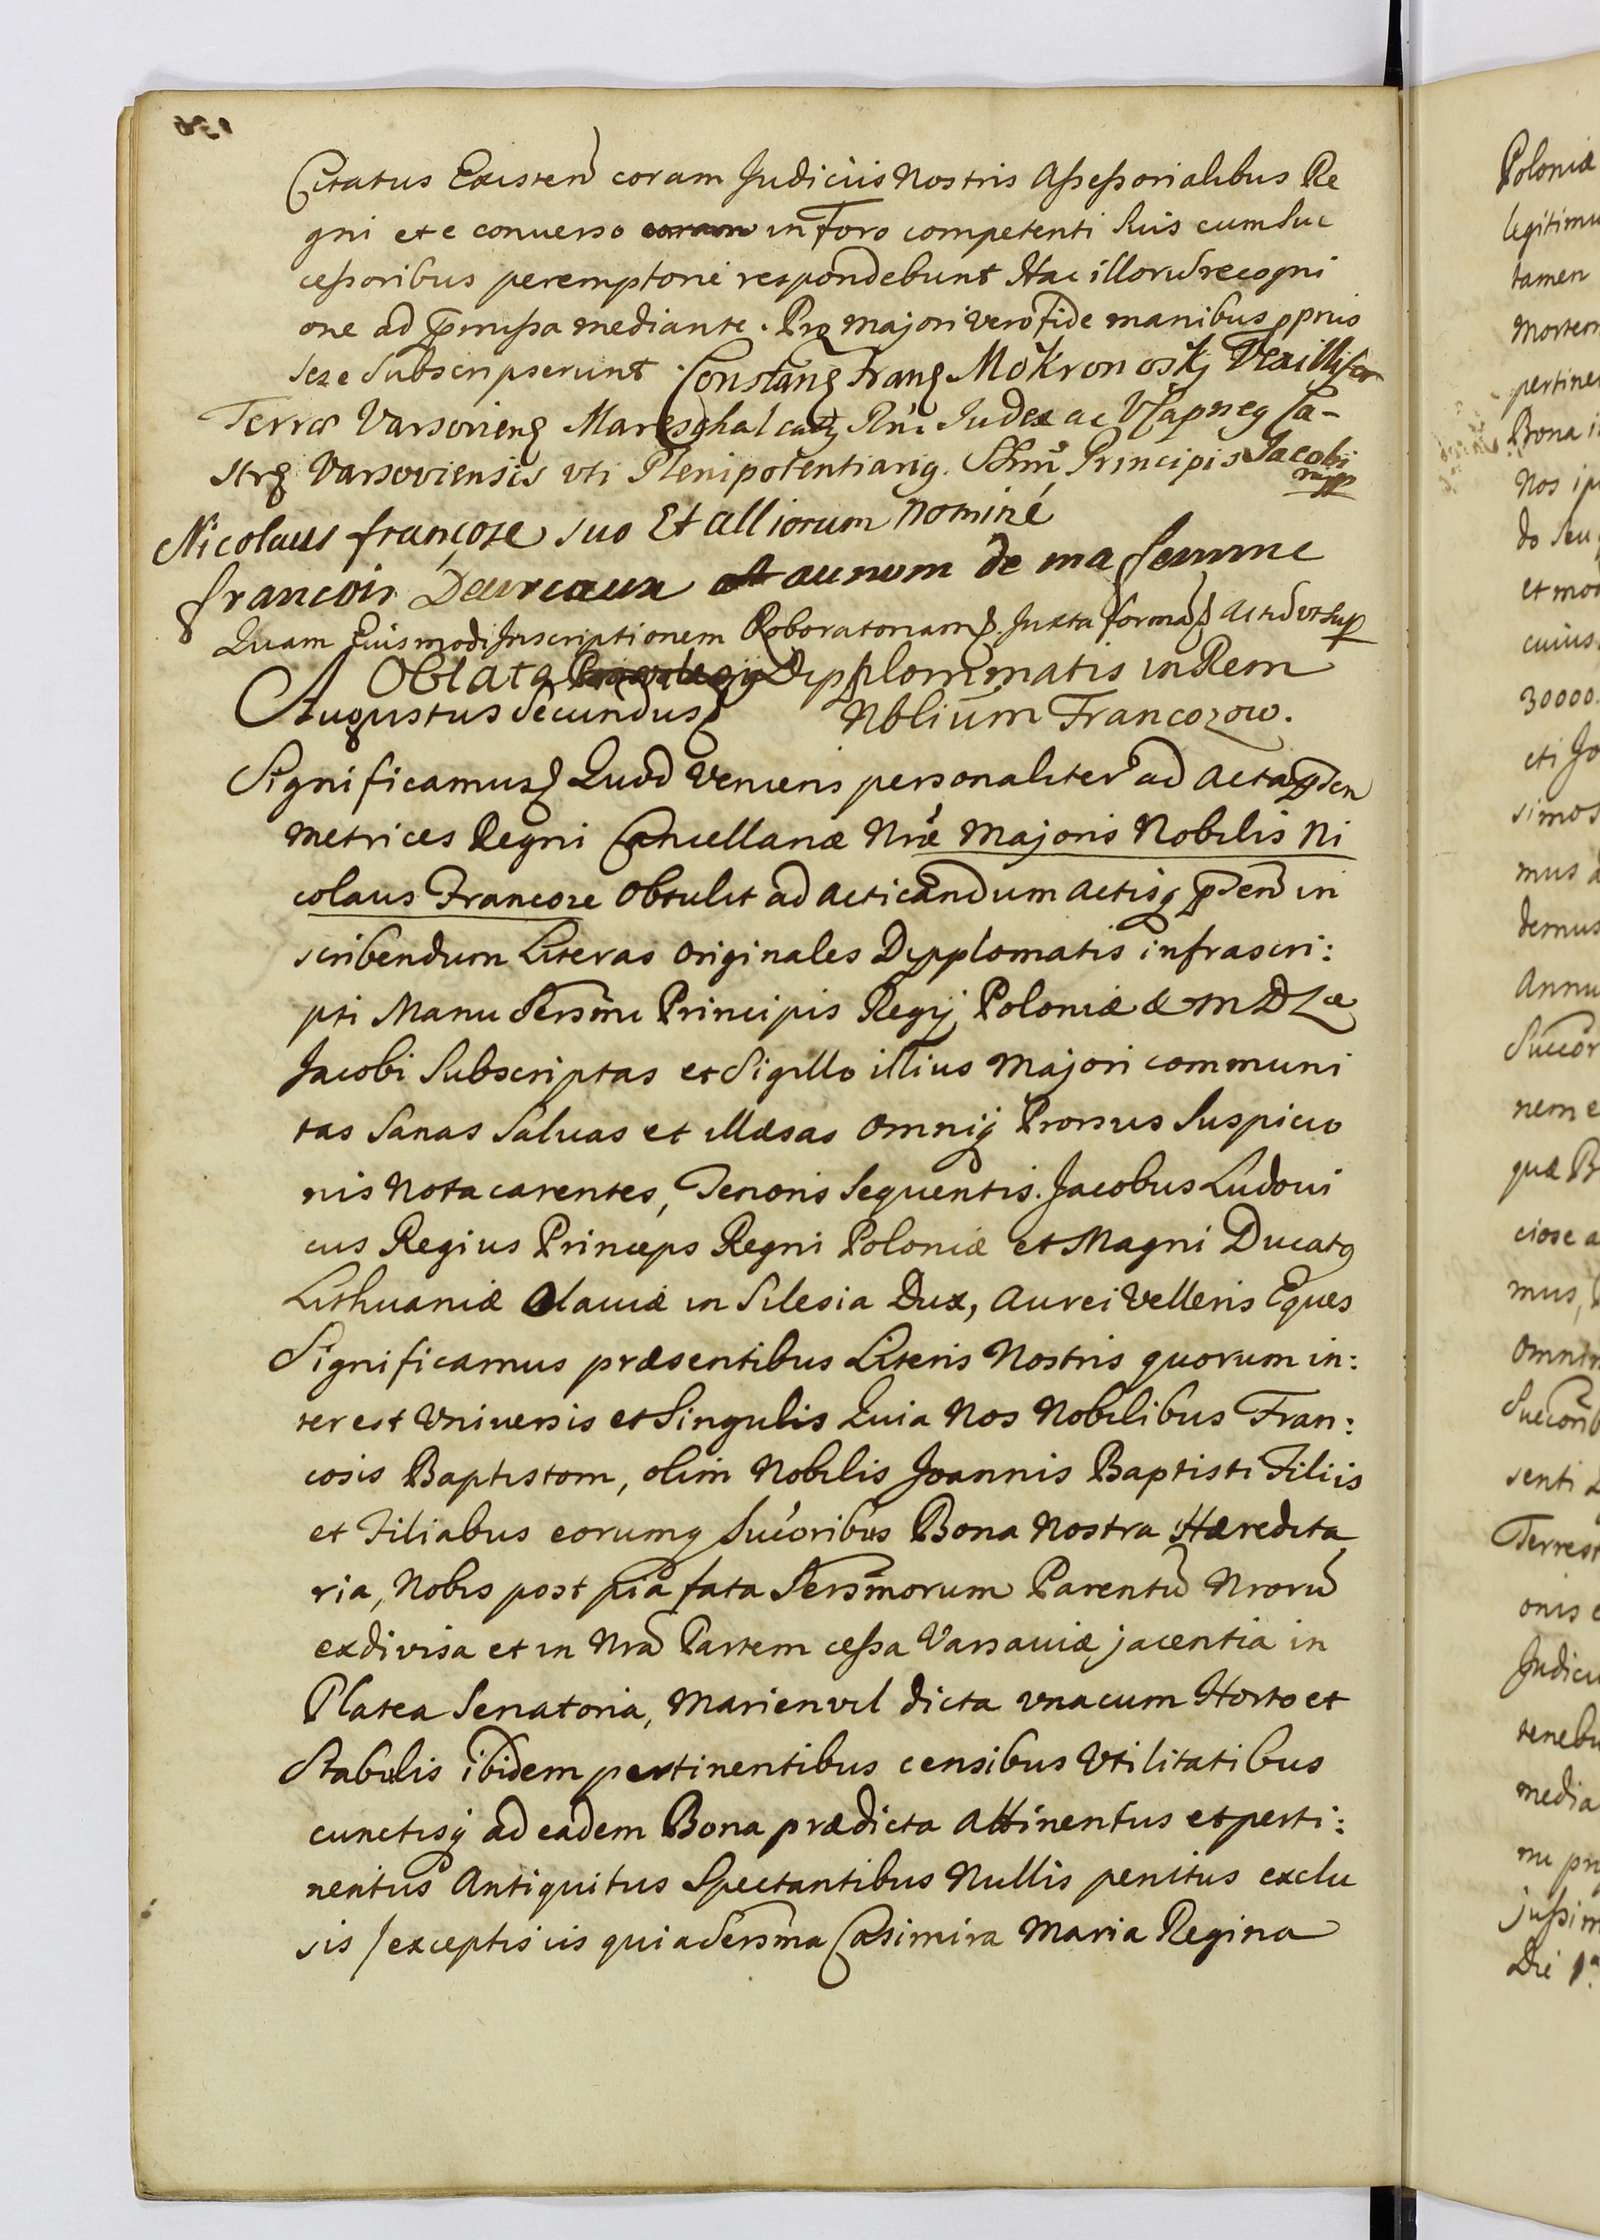 Citatus Existeñ coram Judicijs Nostris Assessorialibus Re
gni et e conuerso coram in Foro competenti Suis cum Suc
cessoribus peremptorie respondebunt Hac illorũ recogni
one ad p̃missa mediante. Pro majori vero fide manibus pprijs
sese Subscripserunt. Constanʒ Franʒ Mokronoskj Vexillifer
Terræ Varsovienʒ Mareschal Judex ac V Ca-
strʒ Varsoviensis vti Plenipotentiariq. Principis Jacobi
mpp
Nicolaus françoze suo Et alliorum nominé
françois Deureaux aunom de ma femme
Quam Eiusmodi Inscriptionem Roboratoriam Juxta formã Actũ ut Sup
Oblata Dypplommatis in Rem
Augustus Secundus Nblium Francozow.
Significamus Quod Veniens personaliter ad Acta p̃sen
Metrices Regni Cancellariæ Nræ Majoris Nobilis Ni
colaus Francoze obtulit ad acticandum actisq p̃señ in
scribendum Literas Originales Dypplomatis infrascri:
pti Manu Sersmi Principis Regij Poloniæ & M D L æ
Jacobi Subscriptas et Sigillo illius Majori communi
tas Sanas Saluas et illæsas omniq Prorsus Suspicio
nis Nota carentes, Tenoris Sequentis. Jacobus Ludoui
cus Regius Princeps Regni Poloniæ et Magni Ducatq
Lithuaniæ Olauiæ in Silesia Dux, Aurei Velleris Eques
Significamus præsentibus Literis Nostris quorum in:
terest Vniversis et Singulis Quia Nos Nobilibus Fran:
cosis Baptistom, olim Nobilis Joannis Baptisti Filiis
et Filiabus eorumq Sucoribus Bona Nostra Hæredita
ria, Nobis post pia fata Sersmorum Parentũ Nrorũ
exdivisa et in Nrã Partem cessa Varsauiæ jacentia in
Platea Senatoria, Marienvil dicta vna cum Horto et
Stabulis ibidem pertinentibus censibus Vtilitatibus
cunctisq ad eadem Bona prædicta Attinentus et perti:
nentus Antiquitus Spectantibus Nullis penitus exclu
sis /exceptis iis qui a Sersma Casimira Maria Regina
Poloniæ
legitimu
tamen
Mortem
pertine
Bona i
Nos ip
do seu
et mod
cuius
30000.
eti Jo
simos
mus a
demus
Annu
Succor
nem e
quæ B
ciose a
mus,
omnim
Succorib
senti
Terrest
onis e
Judici
tenebu
media
jussim
Die 1